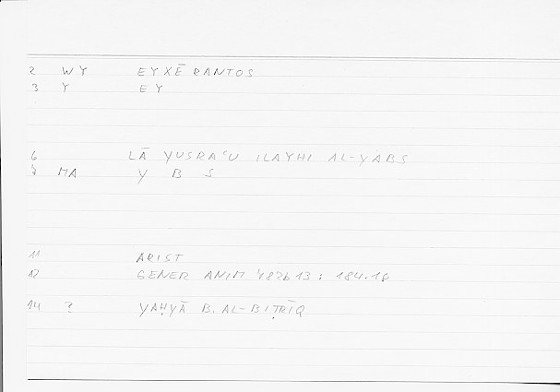 2 WY EYXĒRANTOS
3 Y EY
6 LĀ YUSRAʿU ILAYHI AL-YABS
7 MA Y B S
11 ARIST
12 GENER ANIM 782b13 : 184.16
14 2 YAḤYĀ B. AL-BIṬRĪQ